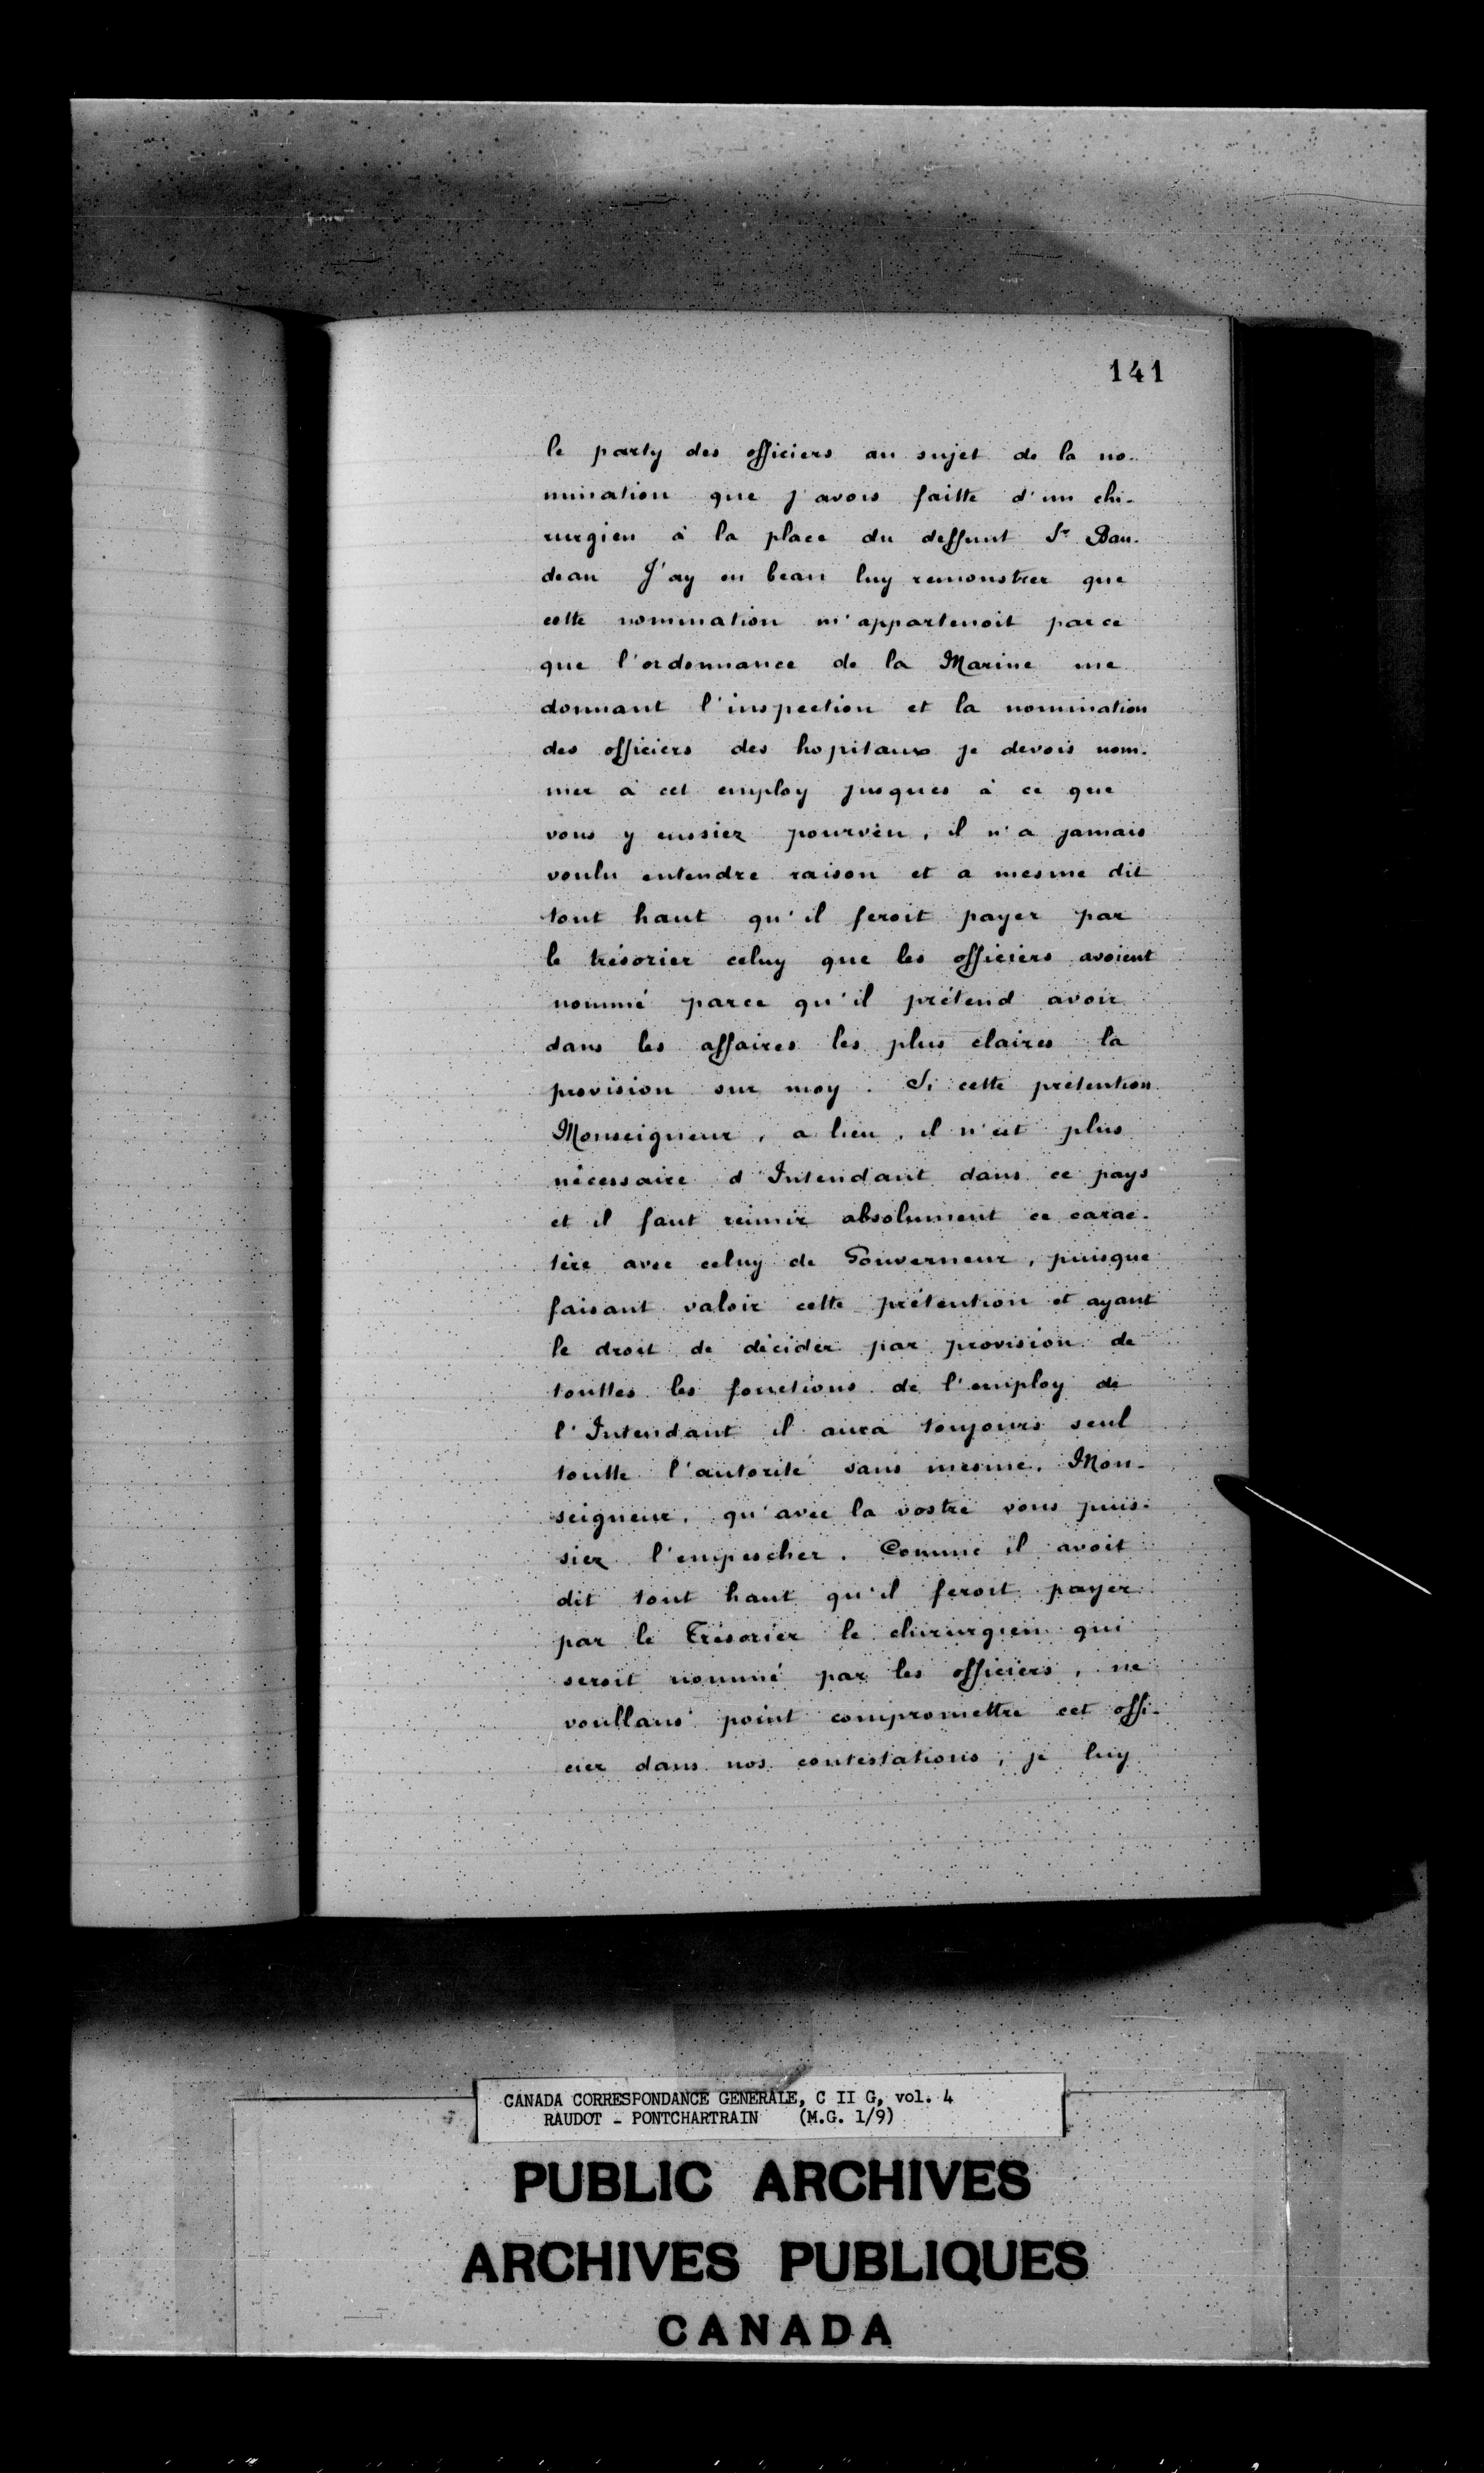 141
le party des officiers au sujet de la no-
mination que j'avois faitte d'un chi-
rurgien à la place du deffunt Sr Bau-
deau J'ay eu beau luy remonstrer que
cette nomination m'appartenoit parce
que l'ordonnance de la Marine me
donnant l'inspection et la nomination
des officiers des hopitaux je devois nom-
mer à cet employ jusques à ce que
vous y eussiez pourvèu, il n'a jamais
voulu entendre raison et a mesme dit
tout haut qu'il feroit payer par
le trésorier celuy que les officiers avoient
nommé parce qu'il prétend avoir
dans les affaires les plus claires la
provision sur moy. Si cette prétention
Monseigneur, a lieu, il n'est plus
nécessaire d'Intendant dans ce pays
et il faut réunir absolument ce carac-
tère avec celuy de Gouverneur, puisque
faisant valoir cette prétention et ayant
le droit de décider par provision de
touttes les fonctions de l'employ de
l'Intendant il aura toujours seul
toutte l'autorité sans mesme, Mon-
seigneur, qu'avec la vostre vous puis-
siez l'empescher. Comme il avoit
dit tout haut qu'il feroit payer
par le Trésorier le chirurgien qui
seroit nommé par les officiers, ne
voullans point compromettre cet offi-
cier dans nos contestations, je luy
CANADA CORRESPONDANCE GENERALE, C II G, vol. 4
RAUDOT - PONTCHARTRAIN (M.G. 1/9)
PUBLIC ARCHIVES
ARCHIVES PUBLIQUES
CANADA